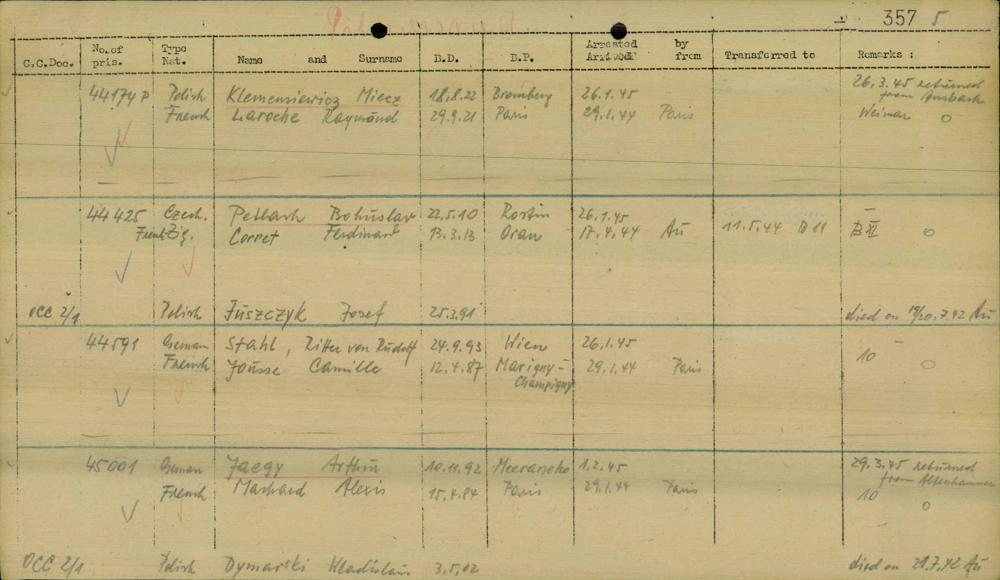 357 5
C.C.Doc. No.of pris. Type Nat. Name and Surname B.D. B.P. Arrested Arrived by from Transferred to Remarks :
44174 P Polish Klemensiewicz Miecz 18.8.22 Bromberg 26.1.45 26.3.45 returned from Ansbach
French Laroche Raymond 29.9.21 Paris 29.1.44 Paris Weimar o
44425 Czech. Petlach Bohuslav 22.5.10 Rostin 26.1.45 –
French Zig. Corret Ferdinand 13.3.13 Oran 17.4.44 Au 11.5.44 B 11 B XI o
OCC 2/1 Polish Juszczyk Josef 25.3.91 died on 19/20.7.42 Au
44591 German Stahl, Ritter von Rudolf 24.9.93 Wien 26.1.45 10
French Jousse Camille 12.4.87 Marigny-Champigny 29.1.44 Paris o
45001 German Jaegy Arthur 10.11.92 1.2.45 29.3.45 returned from Altenhammer
French Machard Alexis 15.4.84 Paris 29.1.44 Paris 10 o
OCC 2/1 Polish Dymarski Wladislaus 3.5.02 died on 29.7.42 Au